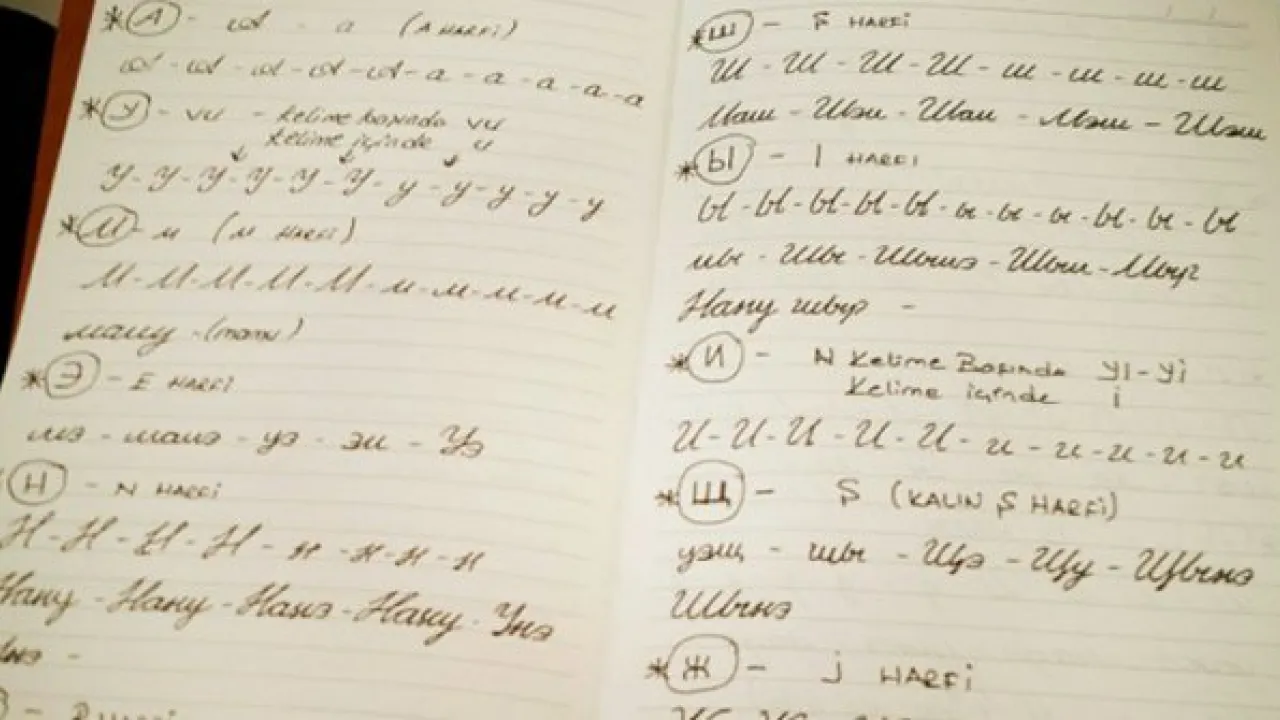 * А - а - а (A HARFİ)
а - а - а - а - а - а - а - а - а - а
* У - vu - Kelime başında vu
Kelime içinde u
У - У - У - У - У - У - у - у - у - у - у
* М - м (M HARFİ)
М - М - М - М - М - м - м - м - м - м
маму - (mamu)
* Э - E HARFİ
мэ - мамэ - уэ - эм - Уэ
Н - N HARFİ
Н - Н - Н - Н - н - н - н - н
Нану - Нану - Нанэ - Нану - Унэ
* Ш - Ş HARFİ
Ш - Ш - Ш - Ш - ш - ш - ш - ш
Маш - Шэш - Шаш - Мэш - Шэш
* Ы - I HARFİ
Ы - Ы - Ы - Ы - Ы - ы - ы - ы - Ы - Ы - Ы
мы - Шы - Шышэ - Шыш -
Нану шыр -
* И - N Kelime Başında yı - yi
Kelime içinde i
И - И - И - И - И - и - и - и - и - и
* Щ - Ş (KALIN Ş HARFİ)
уэщ - щы - Щэ - Щу - Щынэ
Шынэ
* Ж - j HARFİ